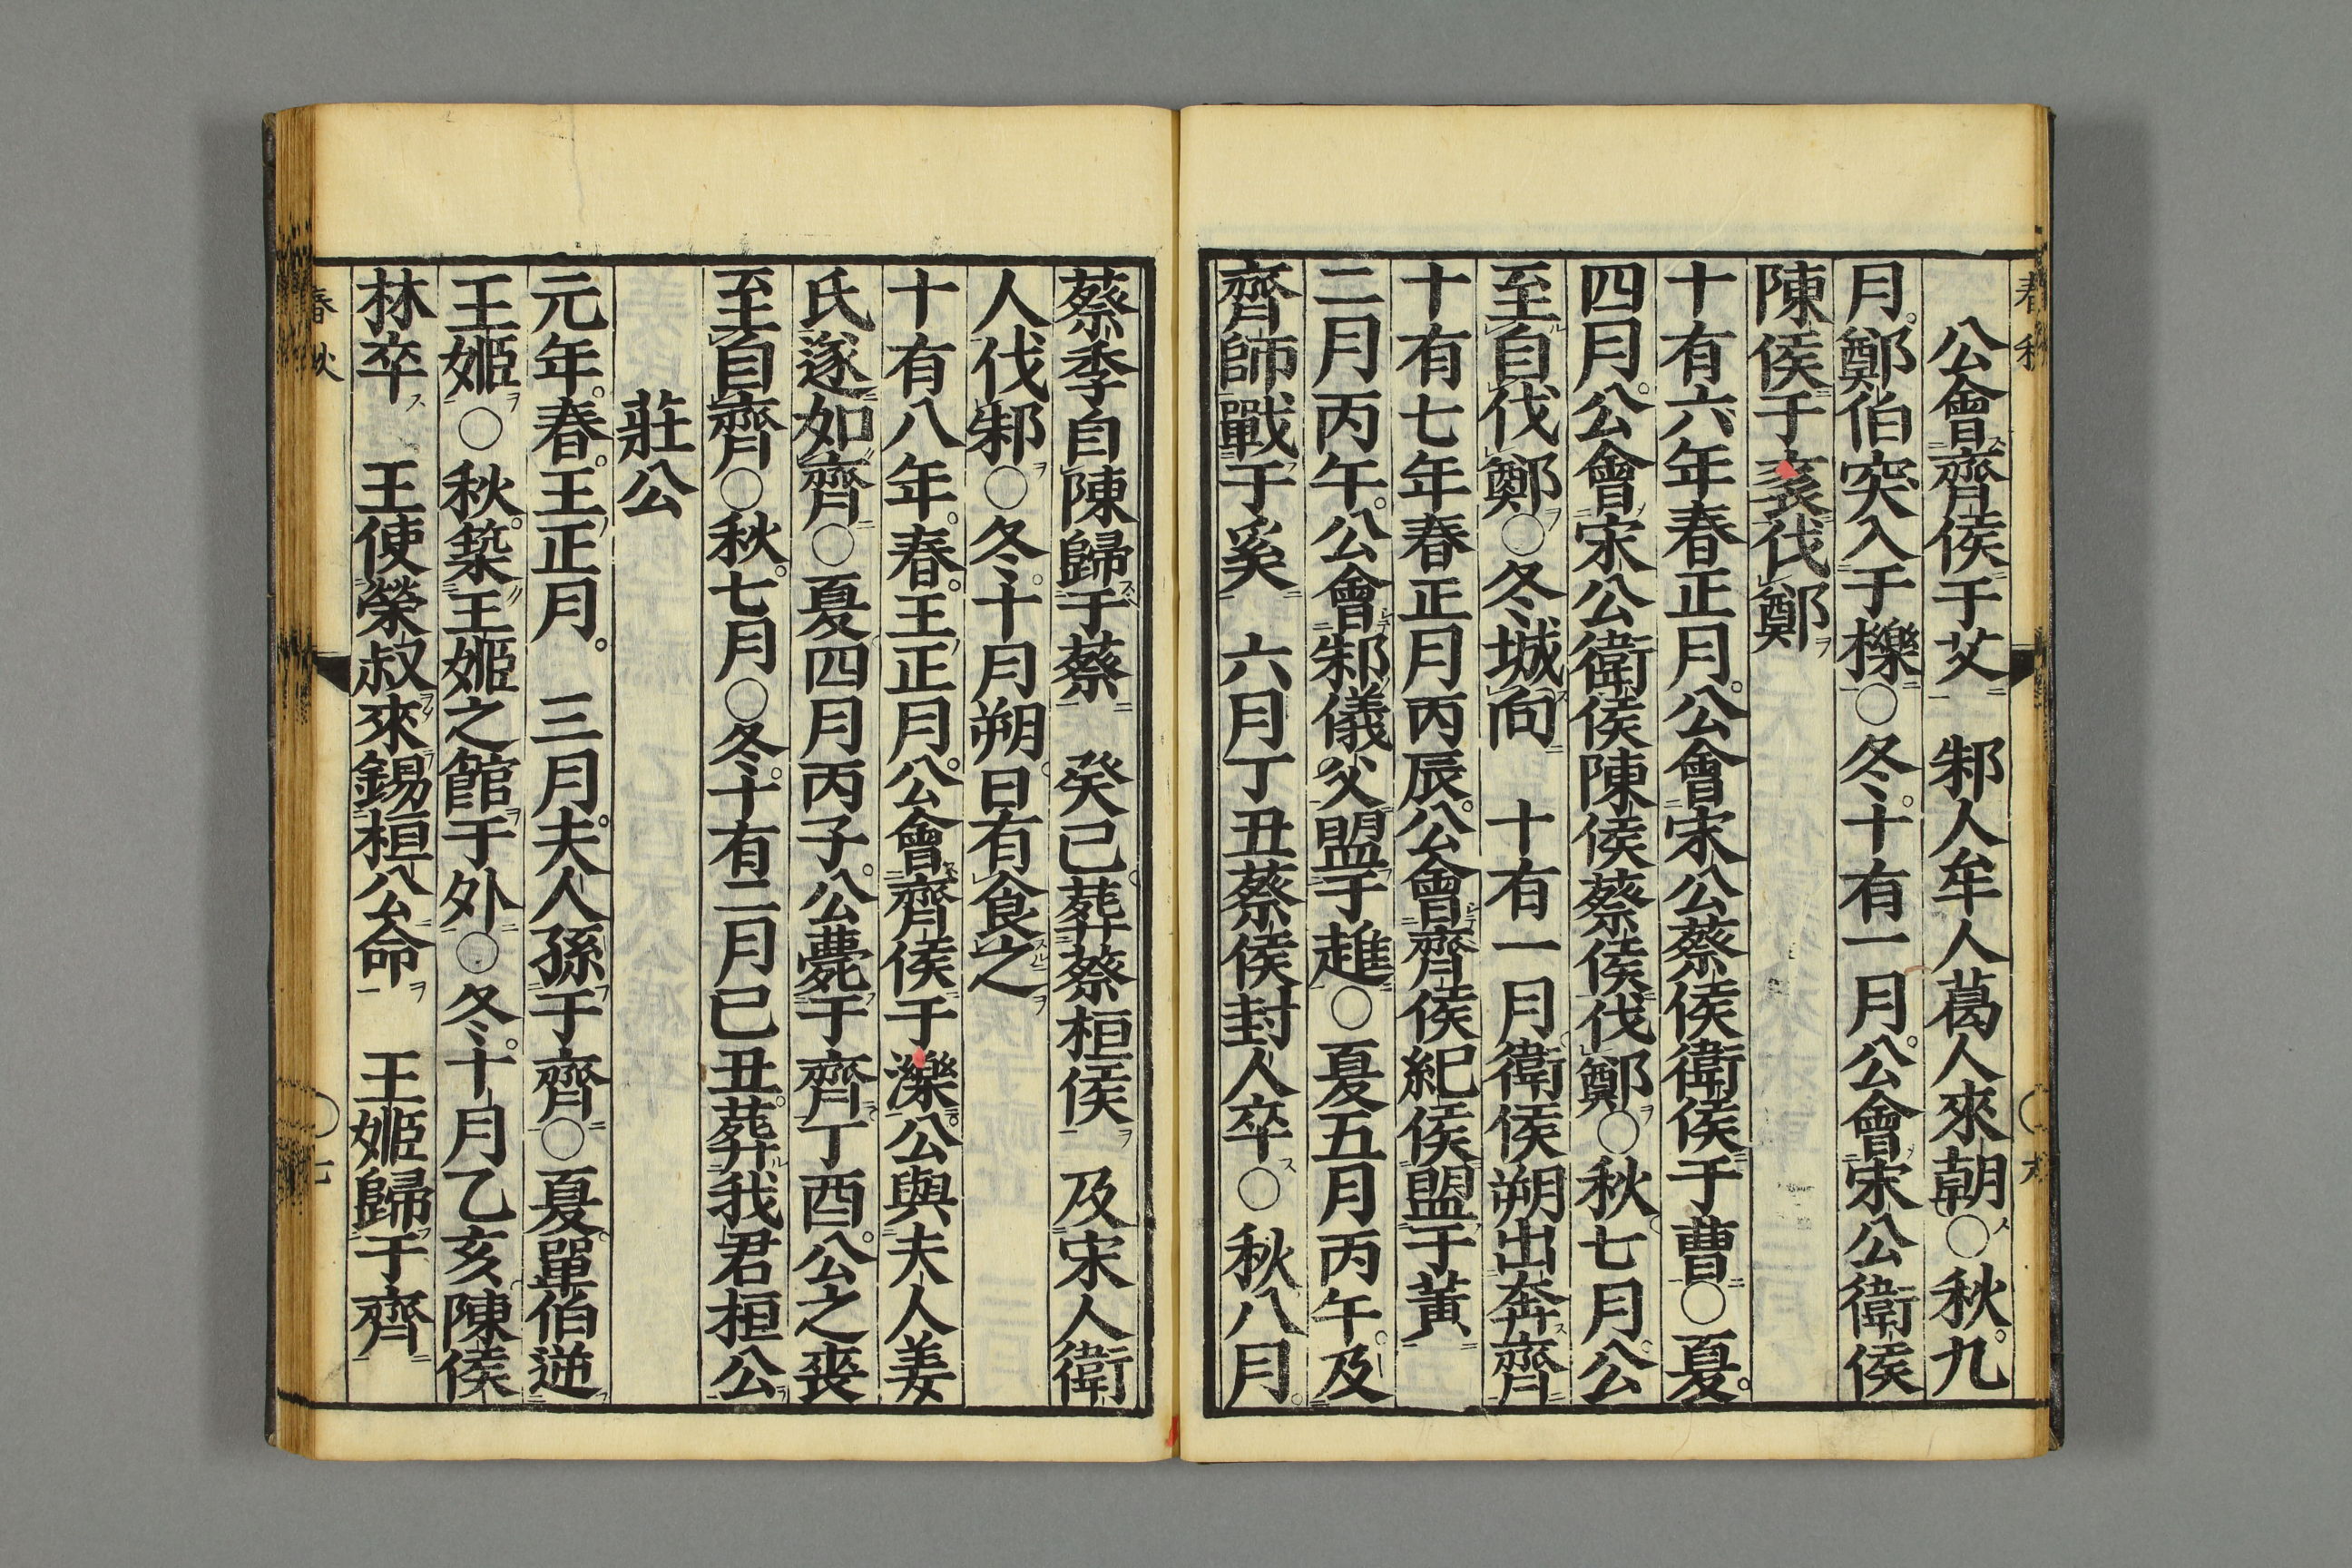 春秋
公會齊侯于艾　邾人牟人葛人來朝○秋九
月鄭伯突入于櫟○冬十有一月公會宋公衛侯
陳侯于袲伐鄭
十有六年春正月公會宋公蔡侯衛侯于曹○夏
四月公會宋公衛侯陳侯蔡侯伐鄭○秋七月公
至自伐鄭○冬城向　十有一月衛侯朔出奔齊
十有七年春正月丙辰公會齊侯紀侯盟于黃
二月丙午公會邾儀父盟于趡○夏五月丙午及
齊師戰于奚　六月丁丑蔡侯封人卒○秋八月
蔡季自陳歸于蔡　癸巳葬蔡桓侯　及宋人衛
人伐邾○冬十月朔日有食之
十有八年春王正月公會齊侯于濼公與夫人姜
氏遂如齊○夏四月丙子公薨于齊丁酉公之喪
至自齊○秋七月○冬十有二月己丑葬我君桓公
莊公
元年春王正月　三月夫人孫于齊○夏單伯逆
王姬○秋築王姬之館于外○冬十月乙亥陳侯
林卒　王使榮叔來錫桓公命　王姬歸于齊
春秋